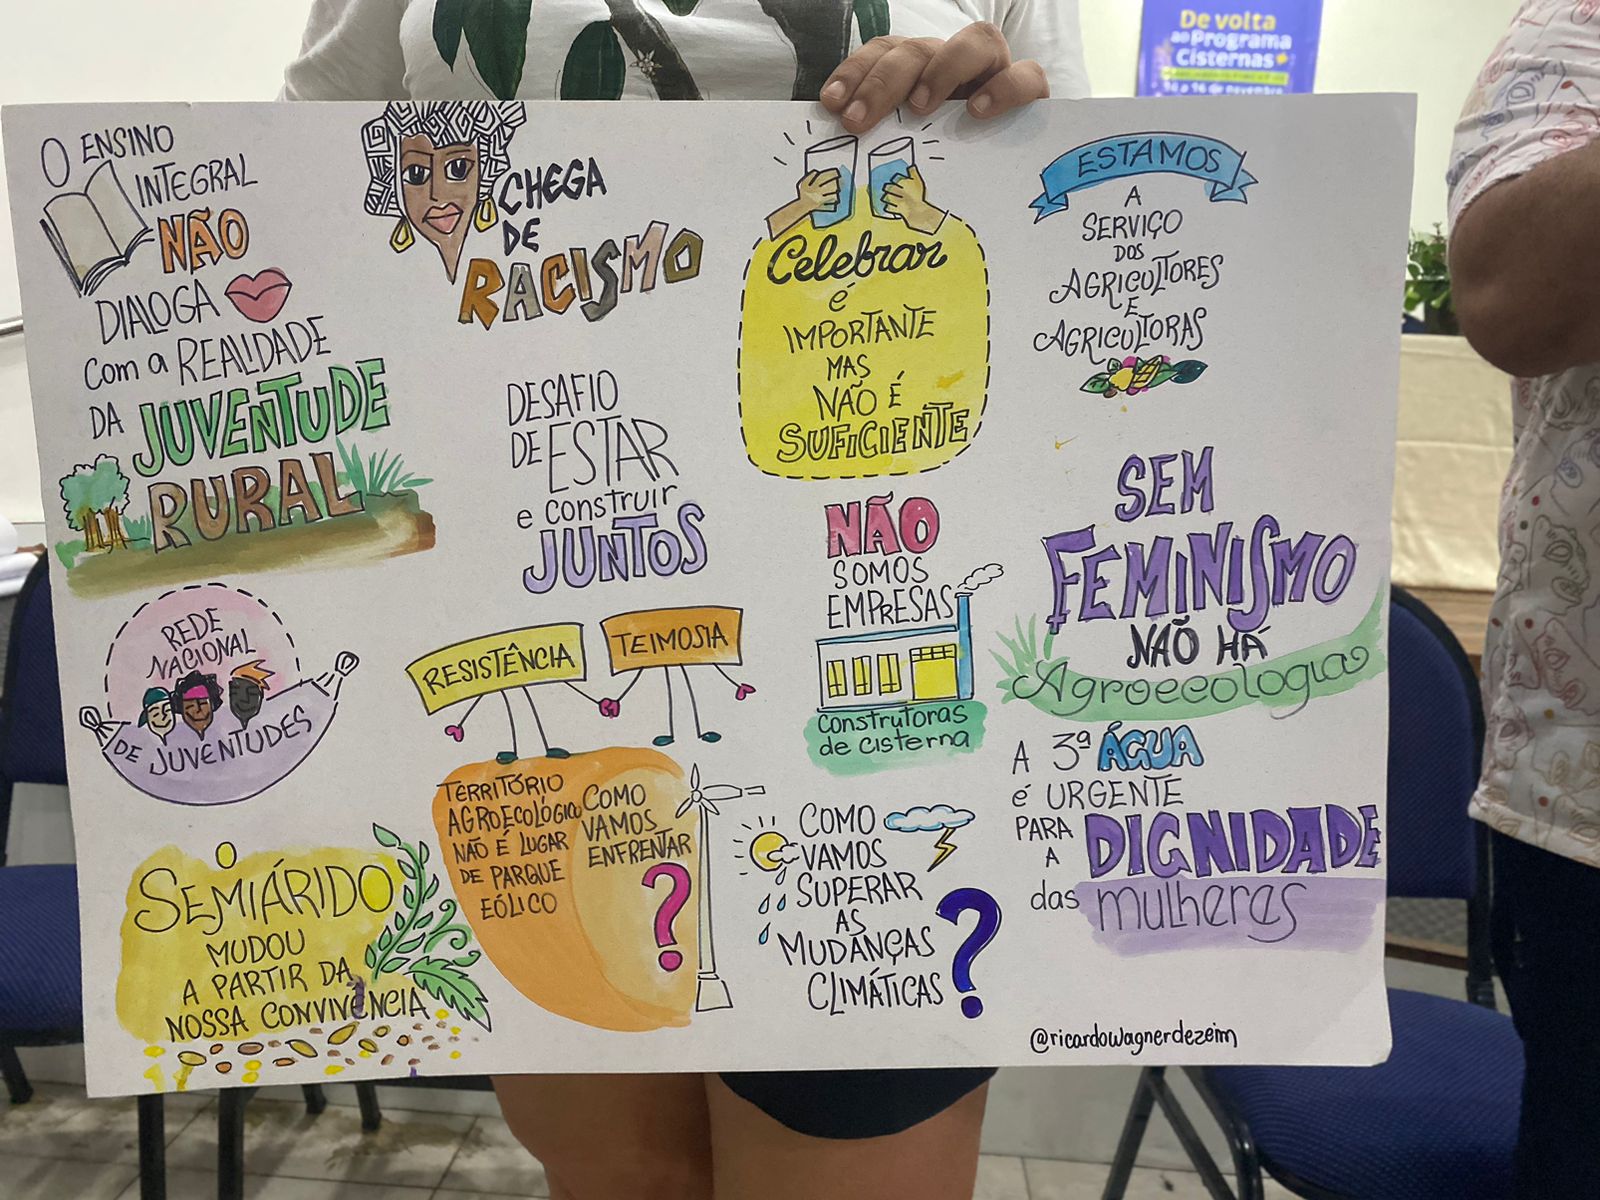 De volta
ao Programa
Cisternas
O ENSINO
INTEGRAL
NÃO
DIALOGA
com a REALIDADE
DA JUVENTUDE
RURAL
CHEGA
DE
RACISMO
Celebrar
é
IMPORTANTE
MAS
NÃO É
SUFICIENTE
ESTAMOS
A
SERVIÇO
DOS
AGRICULTORES
E
AGRICULTORAS
DESAFIO
DE ESTAR
e construir
JUNTOS
NÃO
SOMOS
EMPRESAS
construtoras
de cisterna
SEM
FEMINISMO
NÃO HÁ
Agroecologia
REDE
NACIONAL
DE JUVENTUDES
RESISTÊNCIA
TEIMOSIA
TERRITÓRIO
AGROECOLÓGICO
NÃO É LUGAR
DE PARQUE
EÓLICO
COMO
VAMOS
ENFRENTAR
?
A 3ª ÁGUA
é URGENTE
PARA
A DIGNIDADE
das mulheres
O
SEMIÁRIDO
MUDOU
A PARTIR DA
NOSSA CONVIVÊNCIA
COMO
VAMOS
SUPERAR
AS
MUDANÇAS
CLIMÁTICAS
?
@ricardowagnerdezeim